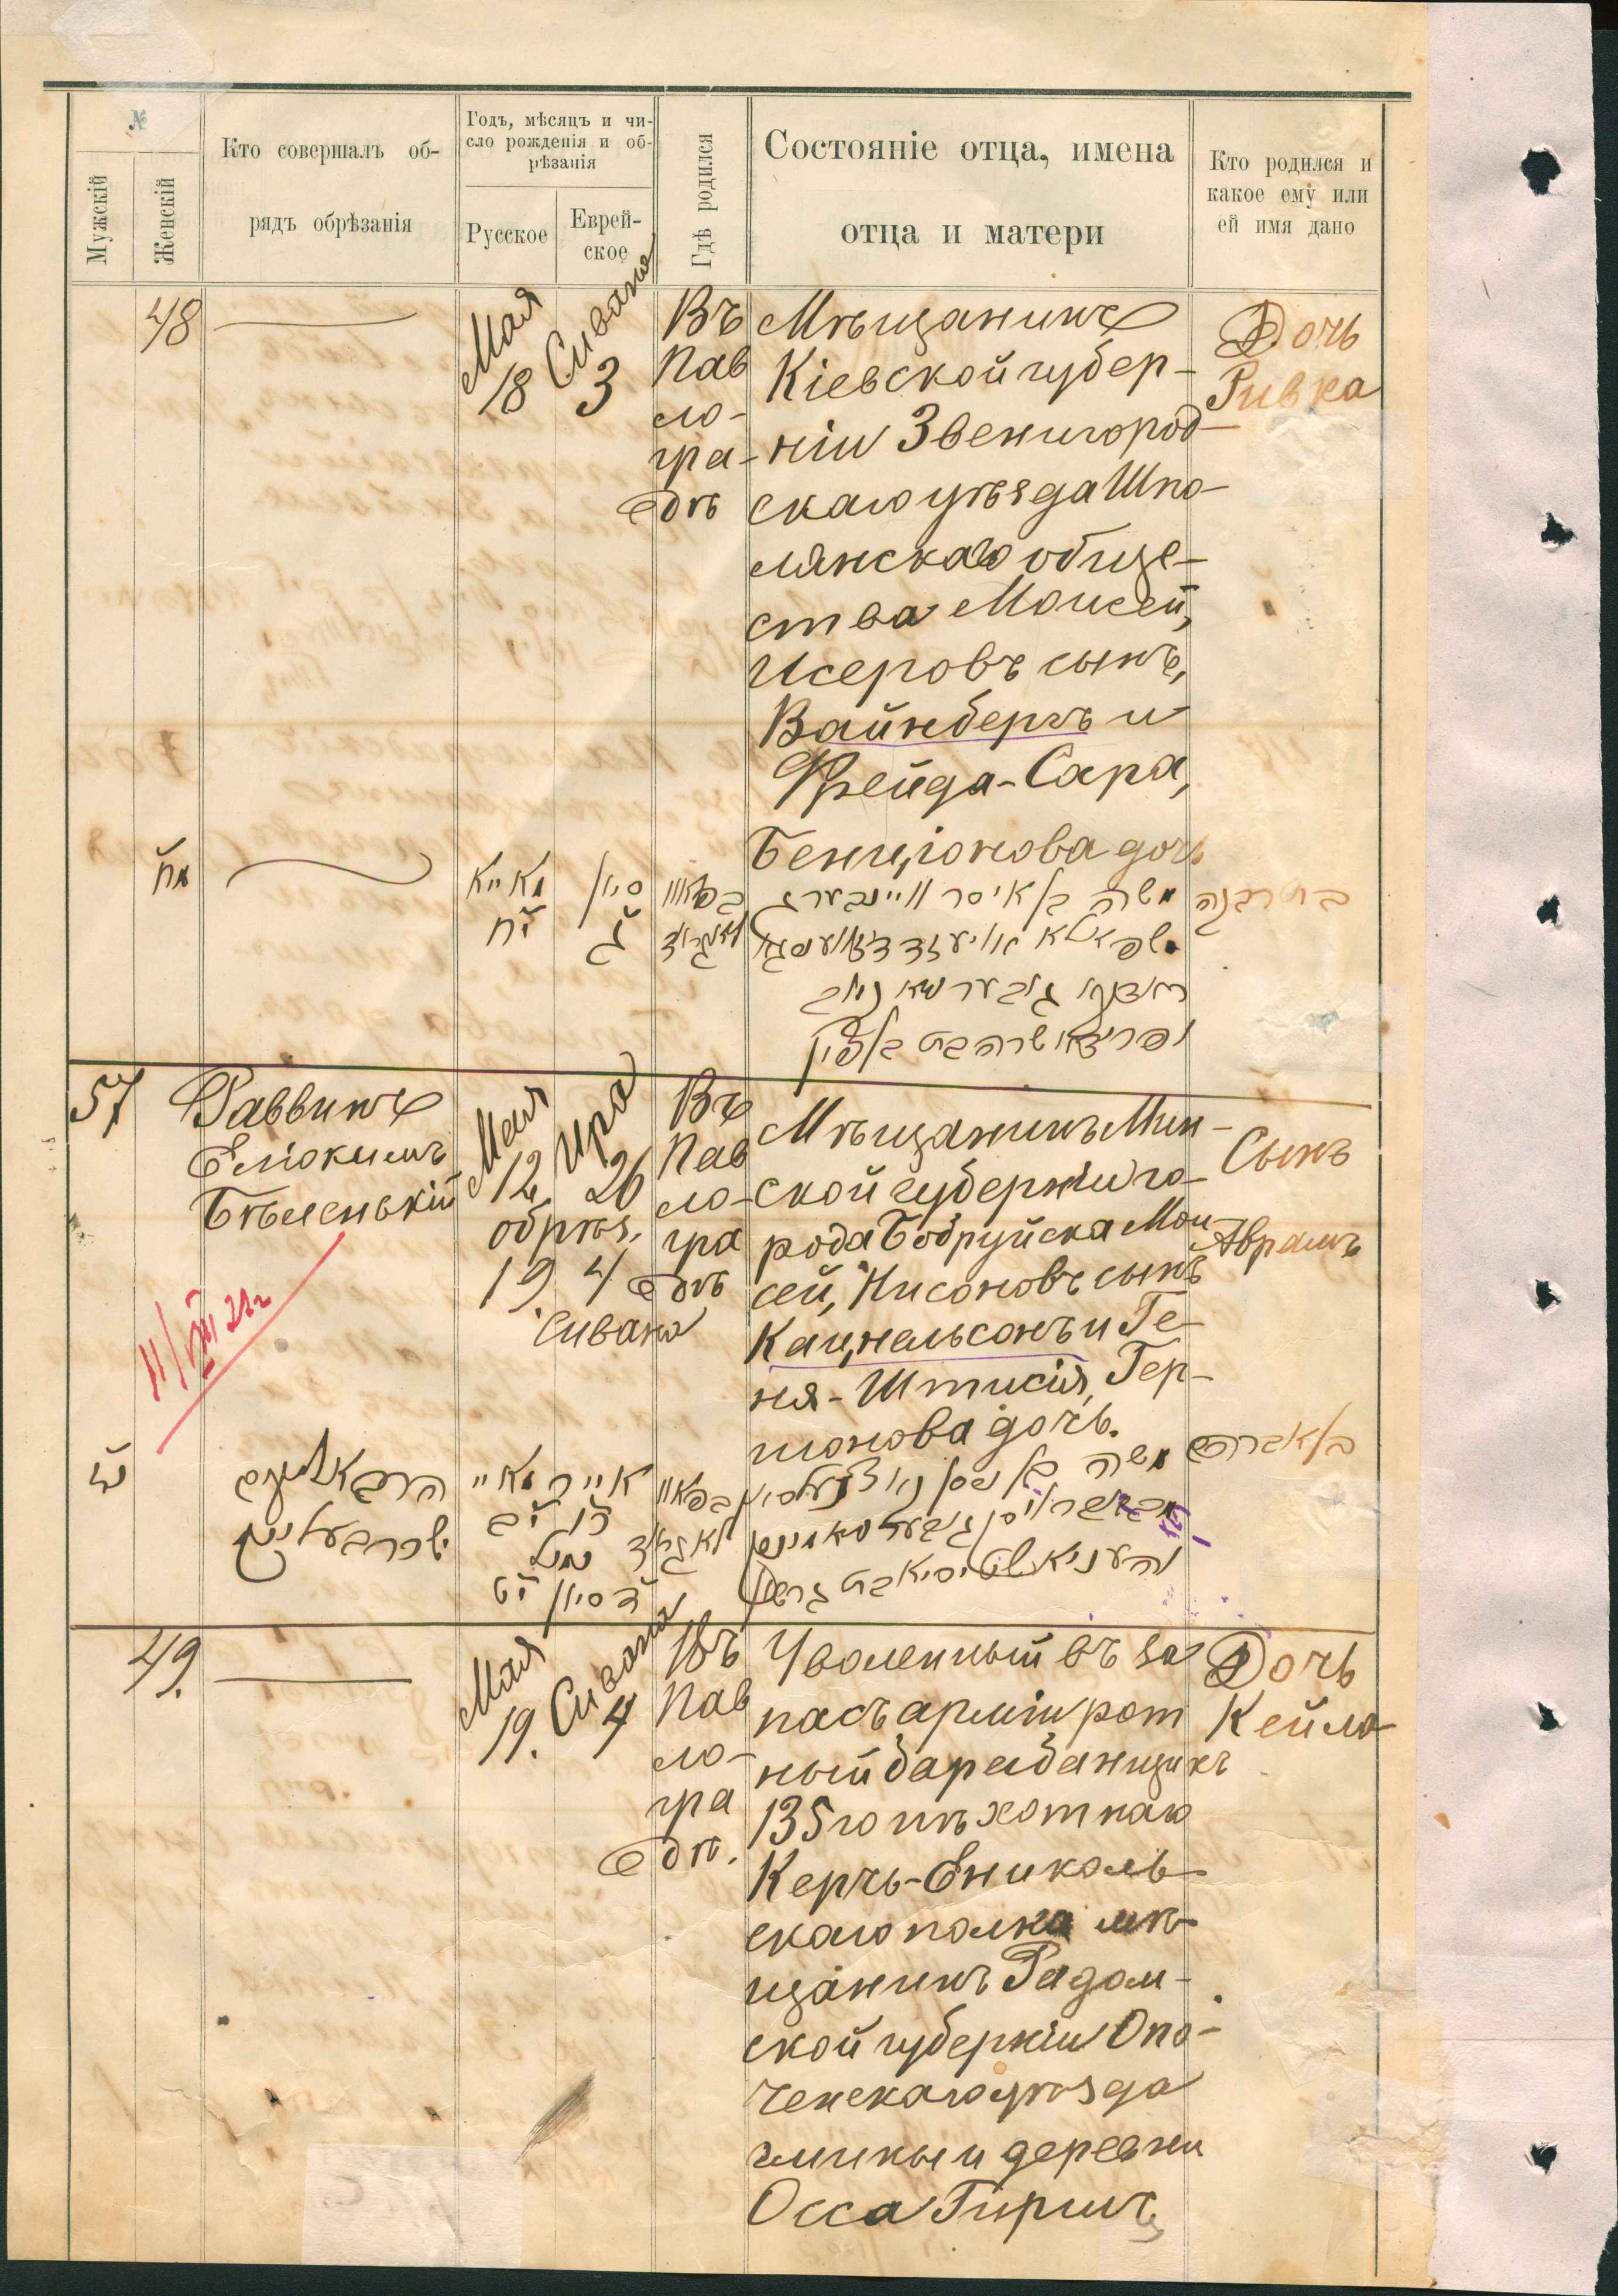 №
Мужскій
Женскій
Кто совершалъ об-
рядъ обрѣзанія
Годъ, мѣсяцъ и чи-
сло рожденія и об-
рѣзанія
Русское
Еврей-
ское
Гдѣ родился
Состояніе отца, имена
отца и матери
Кто родился и
какое ему или
ей имя дано
48
Мая
18
Сивана
3
Въ
Пав
ло-
гра-
дѣ
Мѣщанинъ
Кіевской губер-
ніи Звенигород-
скаго уѣзда Шпо-
лянскаго обще-
ства Моисей,
Исеровъ сынъ,
Вайнбергъ и
Фрейда-Сара,
Бенціонова дочь
Дочь
Ривка
סיון
ג
משה בן איסר וויינבערג
57
Раввинъ
Еліокимъ
Бѣленькій
11/VIII 21г
Мая
12
обрѣз.
19.
Ира
26
4
Сивана
Въ
Пав
ло-
гра
дѣ
Мѣщанинъ Мин-
ской губерніи го-
рода Бобруйска Мои-
сей, Нисоновъ сынъ
Кацнельсонъ и Ге-
ня-Штисія, Гер-
шонова дочь.
Сынъ
Абрамъ
בן אברהם
49.
Мая
19.
Сивана
4
Въ
Пав
ло-
гра
дѣ.
Уволенный въ за
пасъ арміи рот
ный барабанщикъ
135го пѣхотнаго
Керчь-Ениколь-
скаго полка мѣ-
щанинъ Радом-
ской губерніи Опо-
ченскаго уѣзда
гмины и деревни
Осса Гиршъ
Дочь
Кейла